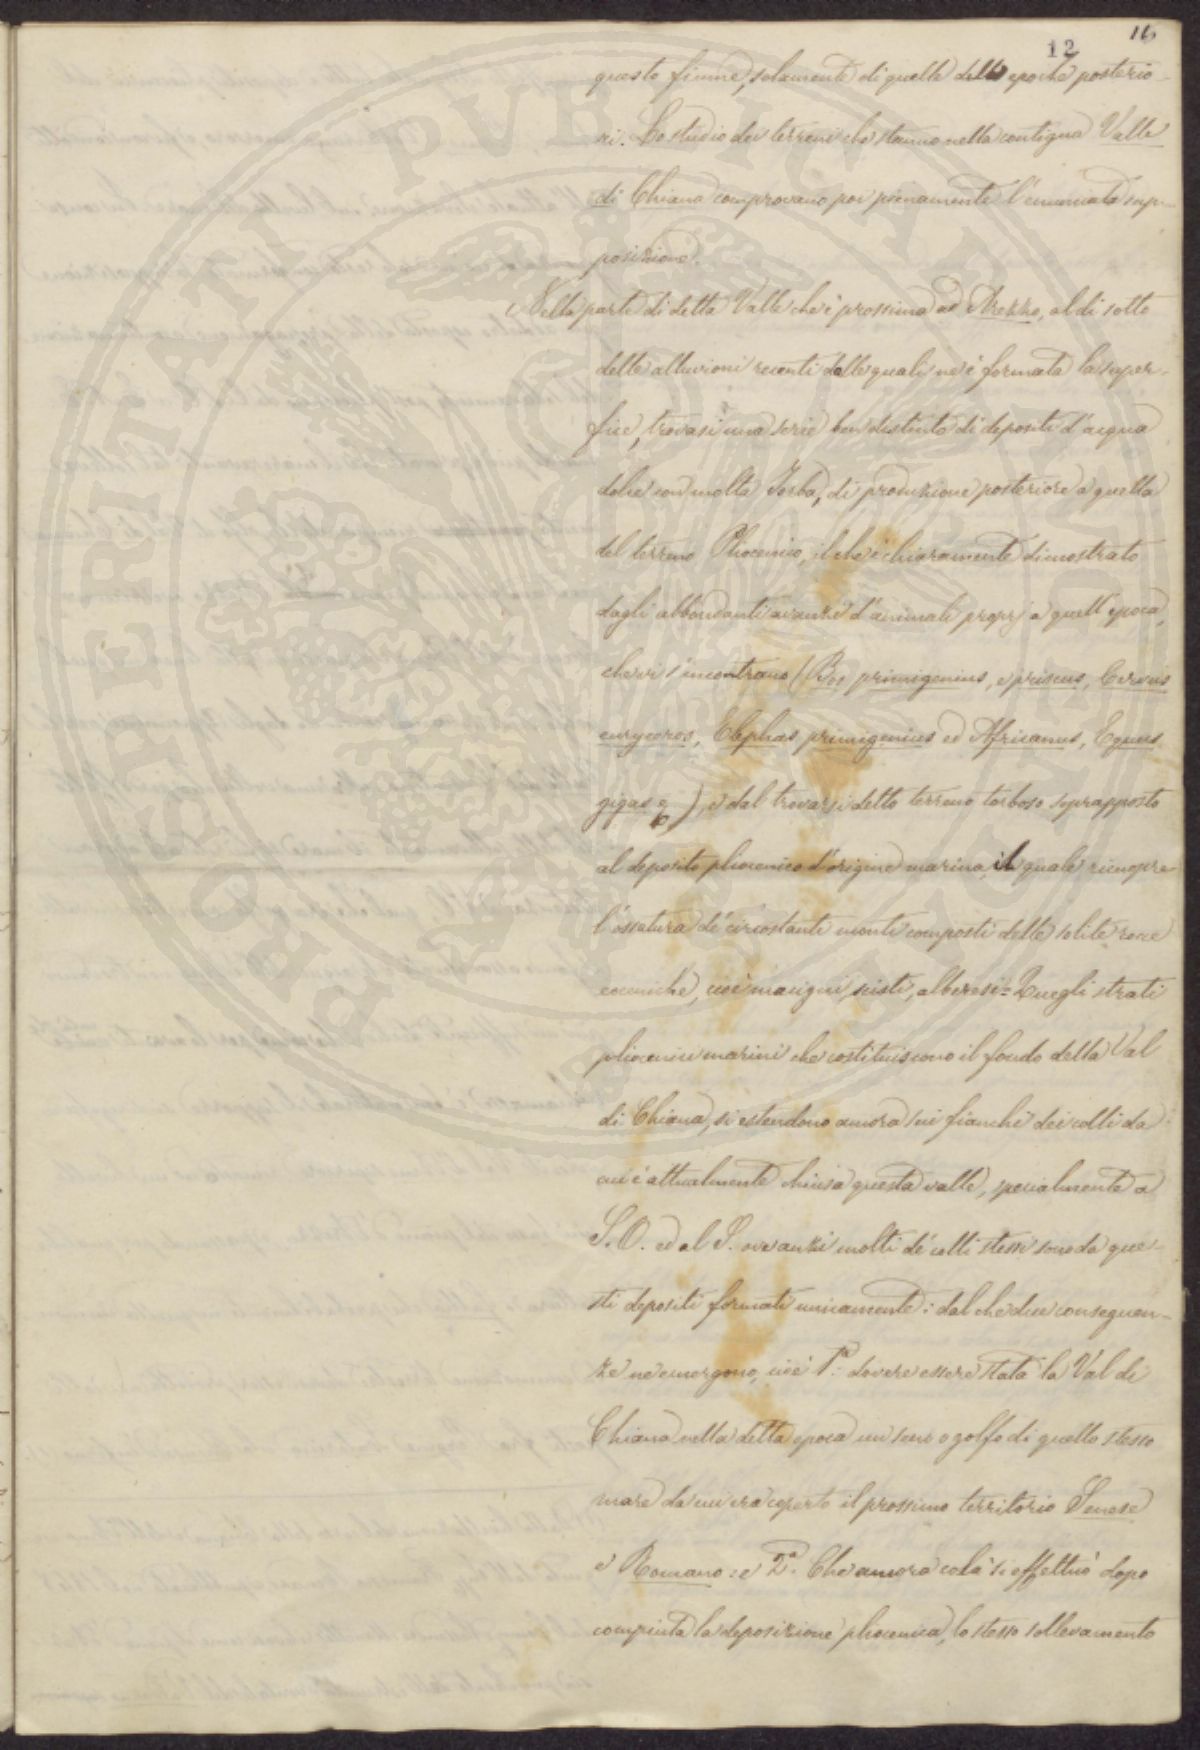 16
12
questo fiume, solamente di quelle delle epoche posterio-
ri. Lo studio dei terreni che stanno nella contigua Valle
di Chiana comprovano poi pienamente l'enunciata sup-
posizione.
Nella parte di detta Valle che è prossima ad Arezzo, al di sotto
delle alluvioni recenti dalle quali ne è formata la super-
fice, trovasi una serie ben distinta di depositi d'acqua
dolce con molta Torba, di produzione posteriore a quella
del terreno Pliocenico, il che è chiaramente dimostrato
dagli abbondanti avanzi d'animali proprj a quell'epoca,
che vi s'incontrano (Bos primigenius, e priscus, Cervus
euryceros, Elephas primigenius ed Africanus, Equus
gigas &), e dal trovarsi detto terreno torboso soprapposto
al deposito pliocenico d'origine marina, il quale ricuopre
l'ossatura de' circostanti monti composti delle solite rocce
eoceniche, cioè macigni, scisti, alberesi = Quegli strati
pliocenici marini che costituiscono il fondo della Val
di Chiana, si estendono ancora sui fianchi dei colli da
cui è attualmente chiusa questa valle, specialmente a
S. O. ed al S. ove anzi molti de' colli stessi sono da que-
sti depositi formati unicamente: dal che due conseguen-
ze ne emergono, cioè 1ª: dovere essere stata la Val di
Chiana nella detta epoca un seno o golfo di quello stesso
mare da cui era coperto il prossimo territorio Senese
e Romano: e 2ª. Che ancora colà si effettuò dopo
compiuta la deposizione pliocenica, lo stesso sollevamento
PROSPERITATI PVBLICAE